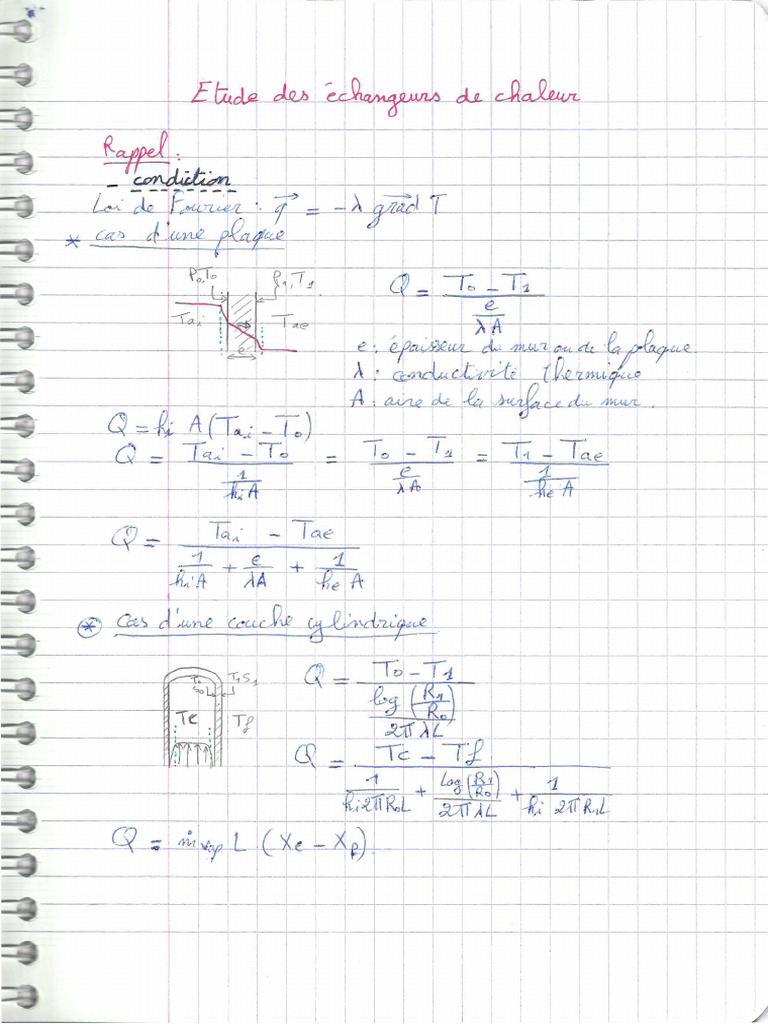 Etude des échangeurs de chaleur
Rappel :
- condiction
Loi de Fourier : q⃗ = -λ grad⃗ T
* cas d'une plaque
P₀,T₀ P₁,T₁
Tai Tae
e
Q = (T₀ - T₁) / (e/λA)
e : épaisseur du mur ou de la plaque
λ : conductivité thermique
A : aire de la surface du mur.
Q = hi A (Tai - T₀)
Q = (Tai - T₀) / (1/hiA) = (T₀ - T₁) / (e/λA) = (T₁ - Tae) / (1/he A)
Q = (Tai - Tae) / (1/hiA + e/λA + 1/he A)
* cas d'une couche cylindrique
T₀ T₁S₁
S₀
Tc Tf
Q = (T₀ - T₁) / (log(R₁/R₀) / 2πλL)
Q = (Tc - Tf) / (1/hi2πR₀L + log(R₁/R₀)/2πλL + 1/hi 2πR₁L)
Q = ṁvap L (Xe - Xp).